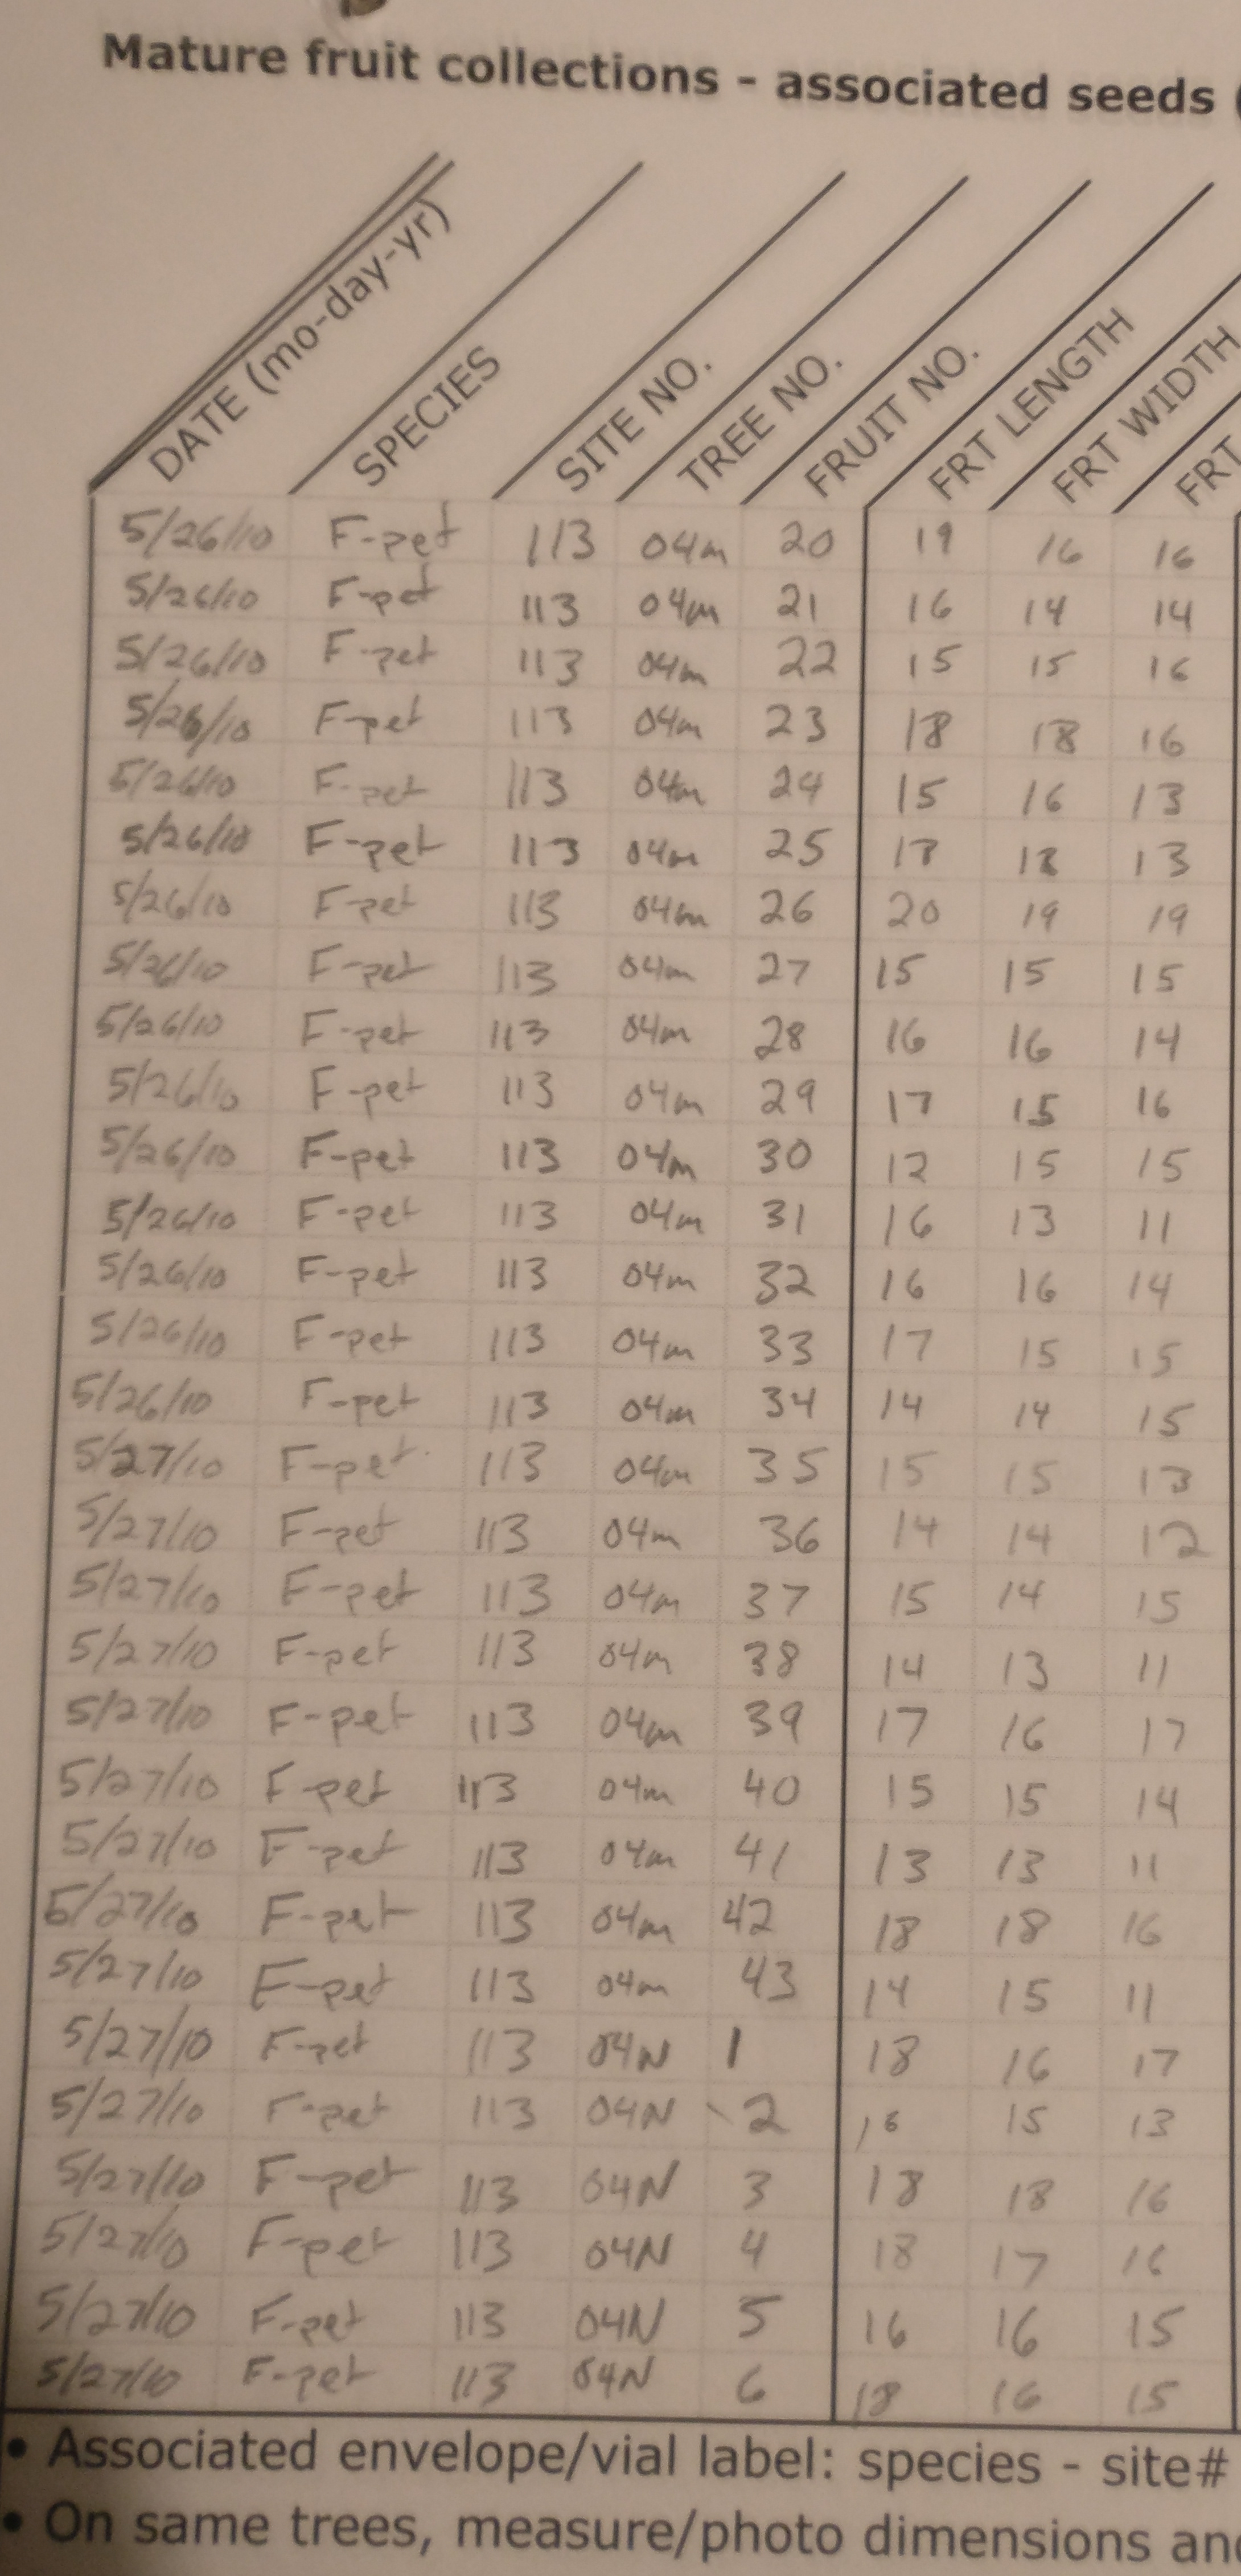 Mature fruit collections - associated seeds (
DATE (mo-day-yr) SPECIES SITE NO. TREE NO. FRUIT NO. FRT LENGTH FRT WIDTH FRT
5/26/10 F-pet 113 04m 20 19 16 16
5/26/10 F-pet 113 04m 21 16 14 14
5/26/10 F-pet 113 04m 22 15 15 16
5/26/10 F-pet 113 04m 23 18 18 16
5/26/10 F-pet 113 04m 24 15 16 13
5/26/10 F-pet 113 04m 25 13
5/26/10 F-pet 113 04m 26 20 19 19
5/26/10 F-pet 113 04m 27 15 15 15
5/26/10 F-pet 113 04m 28 16 16 14
5/26/10 F-pet 113 04m 29 17 15 16
5/26/10 F-pet 113 04m 30 12 15 15
5/26/10 F-pet 113 04m 31 16 13 11
5/26/10 F-pet 113 04m 32 16 16 14
5/26/10 F-pet 113 04m 33 17 15 15
5/26/10 F-pet 113 04m 34 14 14 15
5/27/10 F-pet 113 04m 35 15 15 13
5/27/10 F-pet 113 04m 36 14 14 12
5/27/10 F-pet 113 04m 37 15 14 15
5/27/10 F-pet 113 04m 38 14 13 11
5/27/10 F-pet 113 04m 39 17 16 17
5/27/10 F-pet 113 04m 40 15 15 14
5/27/10 F-pet 113 04m 41 13 13 11
5/27/10 F-pet 113 04m 42 18 18 16
5/27/10 F-pet 113 04m 43 14 15 11
5/27/10 F-pet 113 04N 1 18 16 17
5/27/10 F-pet 113 04N 2 16 15 13
5/27/10 F-pet 113 04N 3 18 18 16
5/27/10 F-pet 113 04N 4 18 17 16
5/27/10 F-pet 113 04N 5 16 16 15
5/27/10 F-pet 113 04N 6 18 16 15
• Associated envelope/vial label: species - site#
• On same trees, measure/photo dimensions and